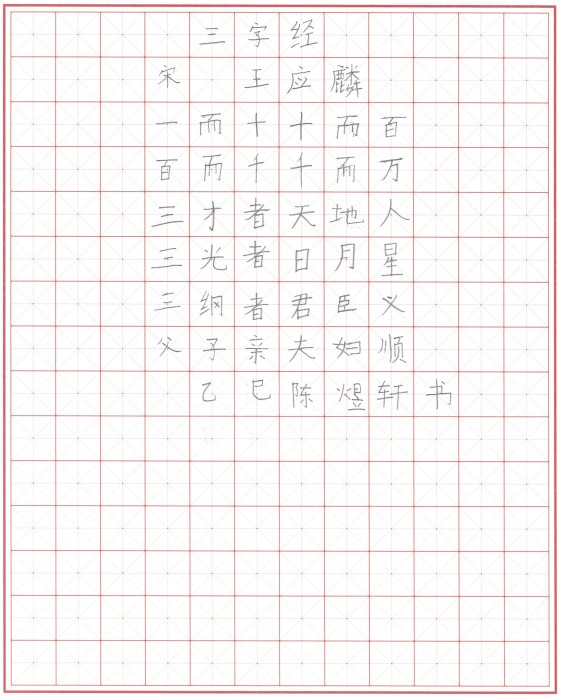 三字经
宋 王应麟
一而十十而百
百而千千而万
三才者天地人
三光者日月星
三纲者君臣义
父子亲夫妇顺
乙巳陈煜轩书